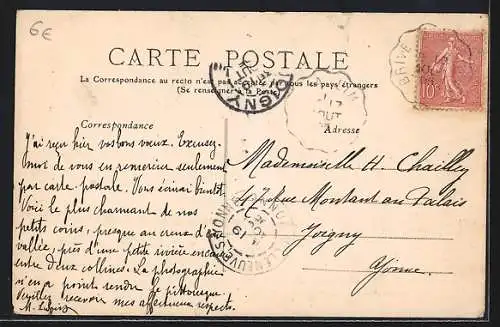 6€
CARTE POSTALE
La Correspondance au recto n'est pas acceptée par tous les pays étrangers
(Se renseigner à la Poste)
Correspondance
Adresse
J'ai reçu hier vos bons vœux. Excusez
moi de vous en remercier seulement
par carte postale. Vous écrirai bientôt.
Voici le plus charmant de nos
petits coins, presque au creux d'une
vallée, près d'une petite rivière encaissée
entre deux collines. La photographie
n'en a point rendu le pittoresque.
Veuillez recevoir mes affectueux respects.
Mademoiselle H. Chailley
47 rue Montant au Palais
Joigny
Yonne
BRIVE
10
JOIGNY
VILLENEUVE
YONNE